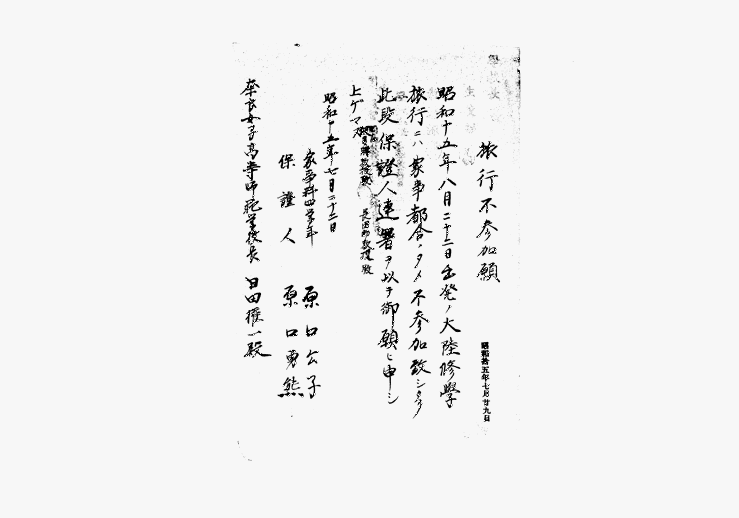 旅行不参加願
昭和拾五年七月廿九日
昭和十五年八月二十二日出発ノ大陸修學
旅行ニハ家事都合ノタメ不参加致シタク
此段保證人連署ヲ以テ御願ヒ申シ
上ゲマス
昭和十五年七月二十二日
家事科四学年
原口公子
保證人
原口勇熊
奈良女子高等師範学校長
殿